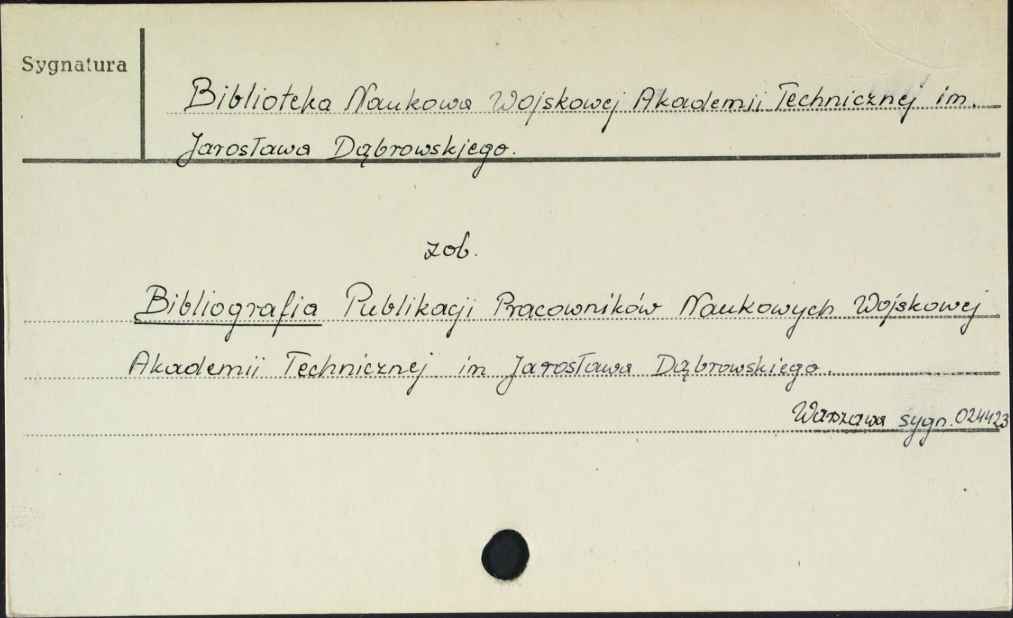 Sygnatura
Biblioteka Naukowa Wojskowej Akademii Technicznej im.
Jarosława Dąbrowskiego.
zob.
Bibliografia Publikacji Pracowników Naukowych Wojskowej
Akademii Technicznej im Jarosława Dąbrowskiego.
Warszawa sygn. 024423